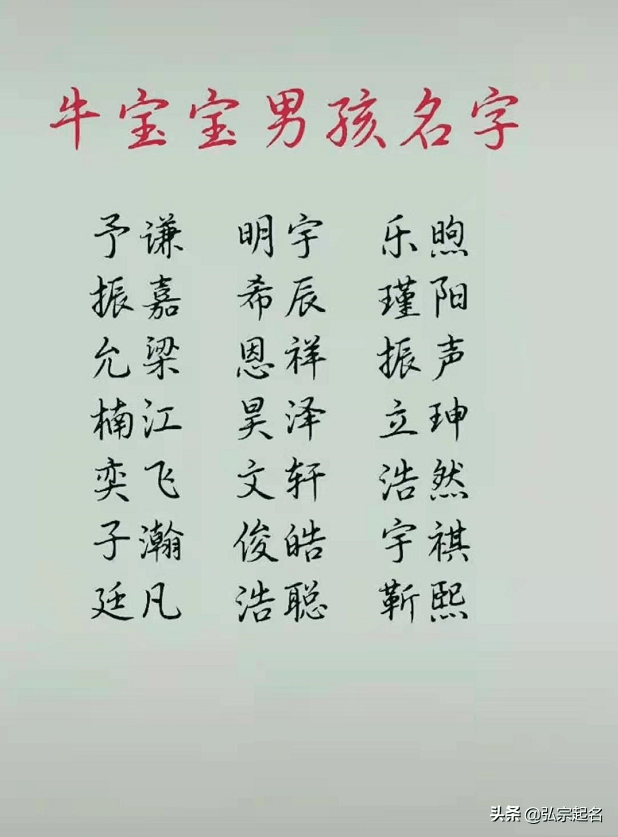 牛宝宝男孩名字
予谦 明宇 乐煦
振嘉 希辰 瑾阳
允梁 恩祥 振声
楠江 昊泽 立珅
奕飞 文轩 浩然
子瀚 俊皓 宇祺
廷凡 浩聪 靳熙
头条 @弘宗起名